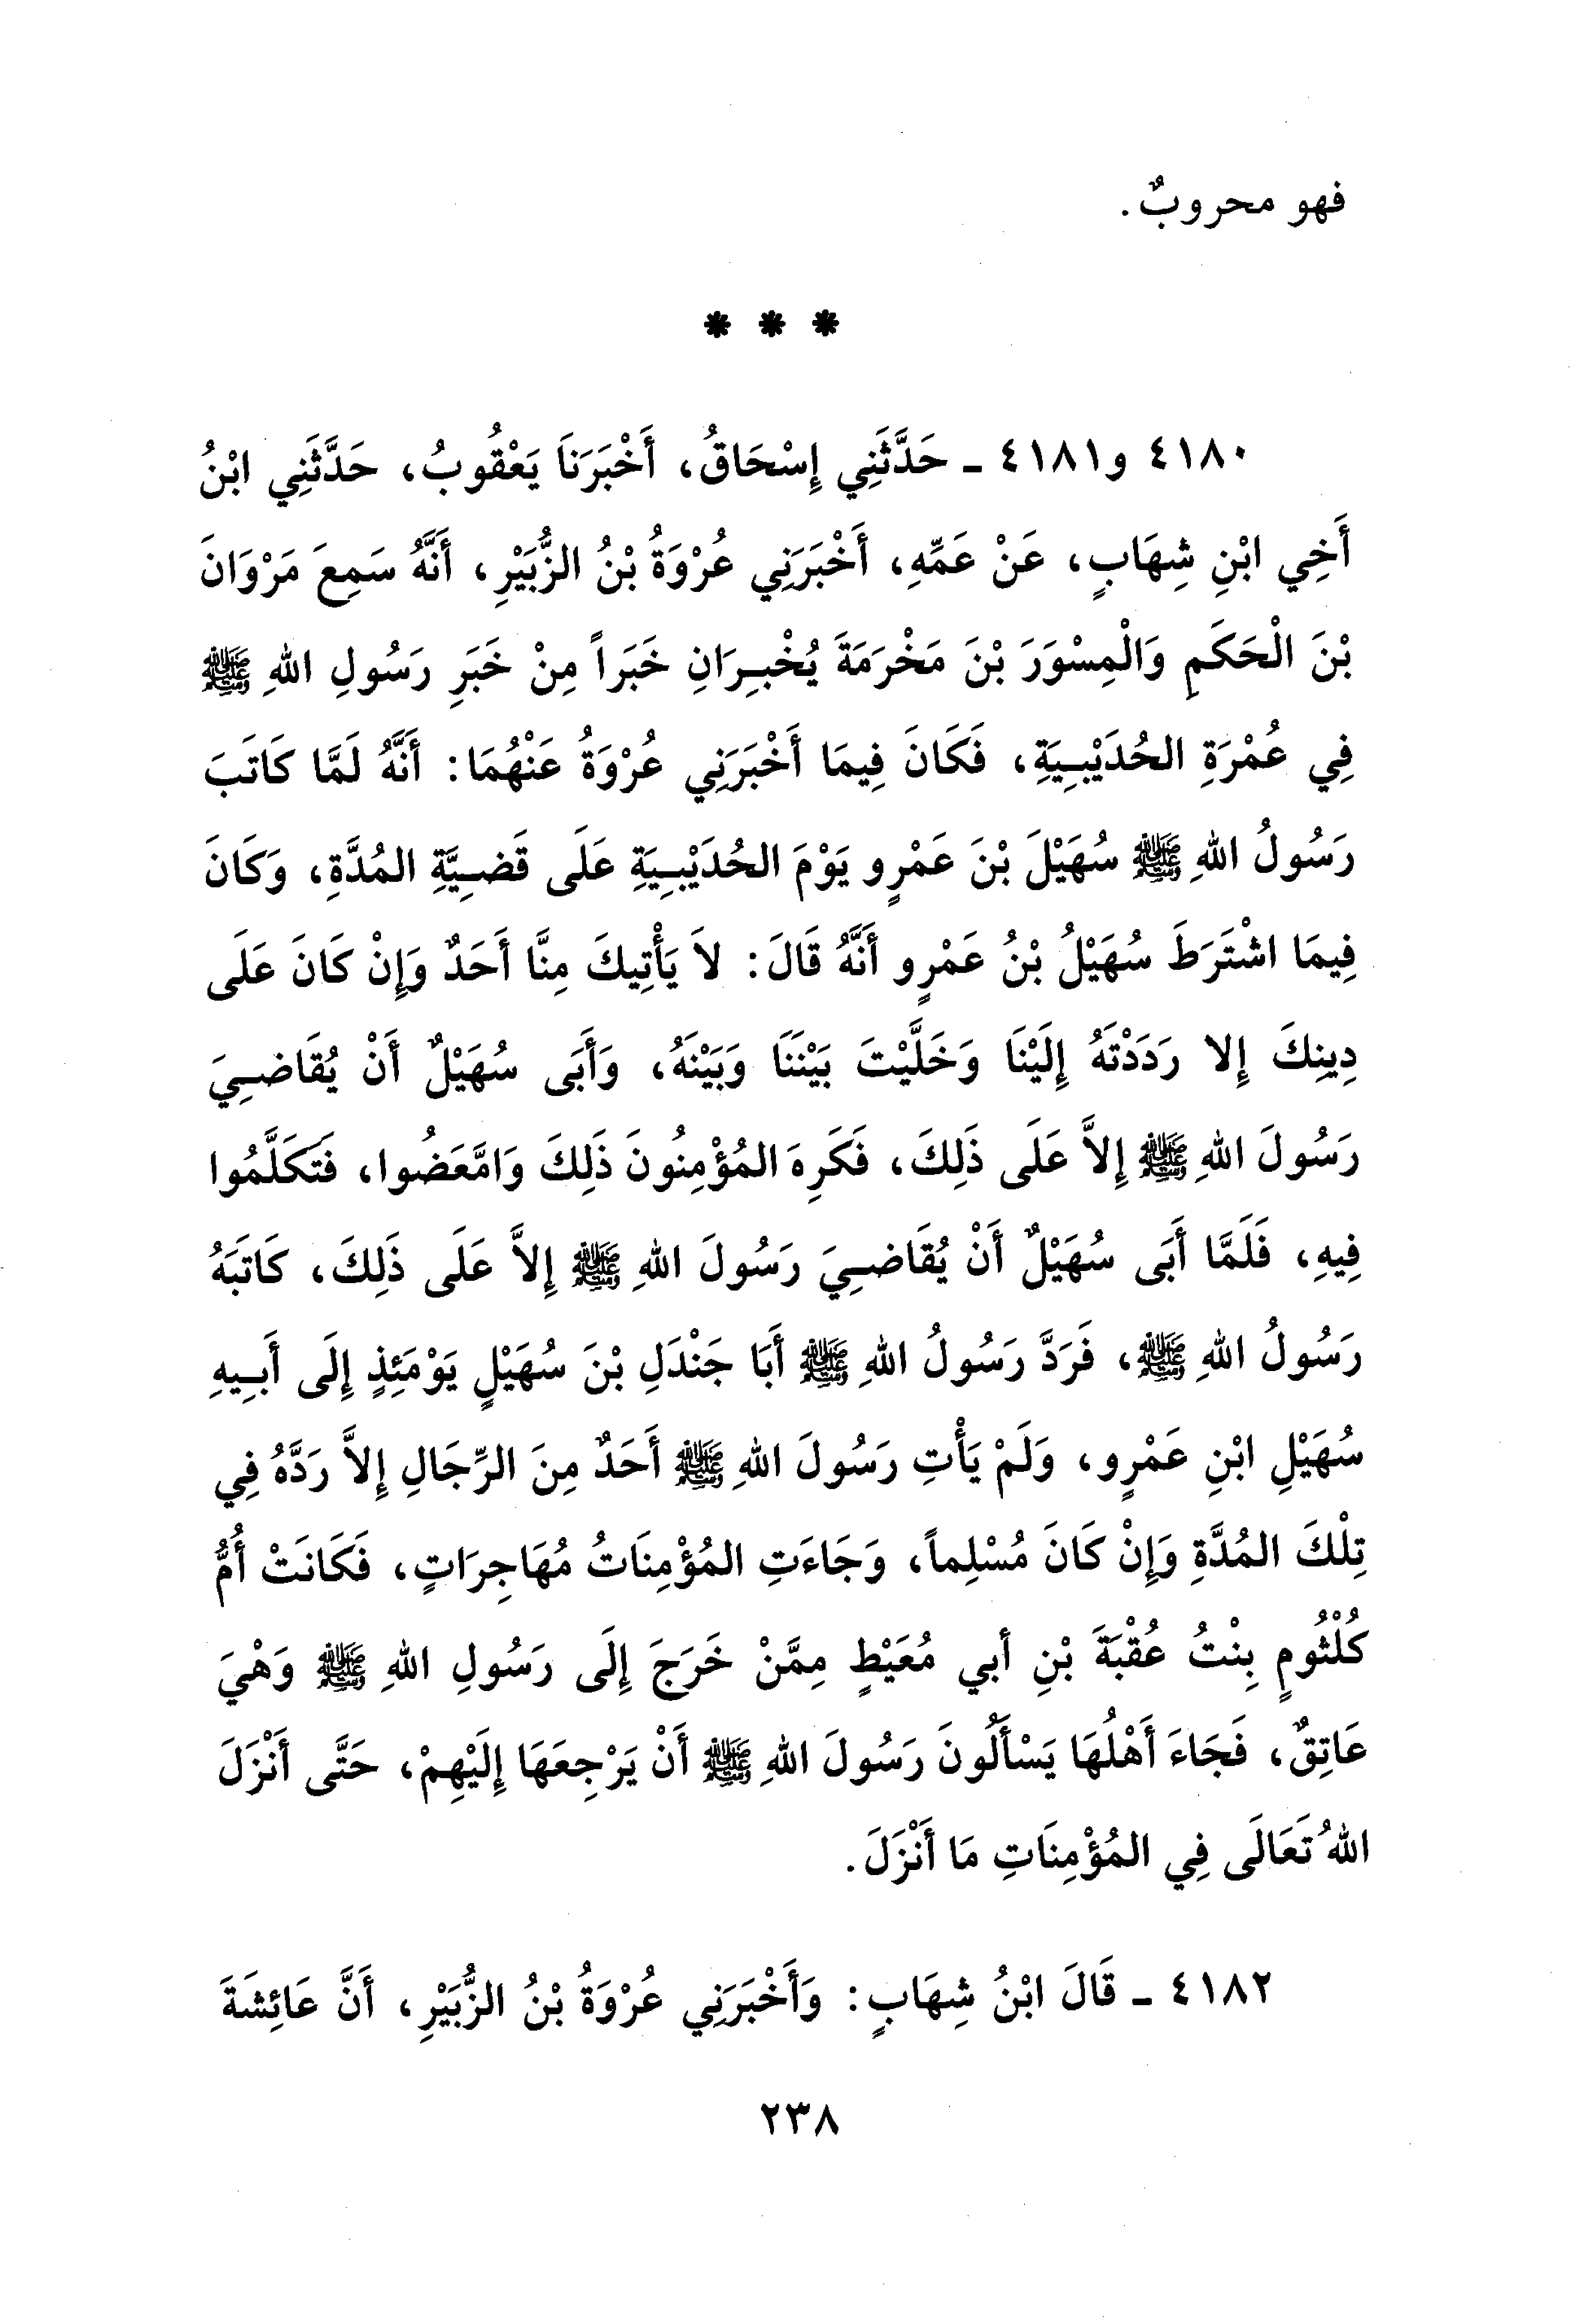 فهو محروبٌ.
* * *
٤١٨٠ و٤١٨١ ـ حَدَّثَنِي إِسْحَاقُ، أَخْبَرَنَا يَعْقُوبُ، حَدَّثَنِي ابْنُ
أَخِي ابْنِ شِهَابٍ، عَنْ عَمِّهِ، أَخْبَرَنِي عُرْوَةُ بْنُ الزُّبَيْرِ، أَنَّهُ سَمِعَ مَرْوَانَ
بْنَ الْحَكَمِ وَالْمِسْوَرَ بْنَ مَخْرَمَةَ يُخْبِرَانِ خَبَراً مِنْ خَبَرِ رَسُولِ اللهِ ﷺ
فِي عُمْرَةِ الحُدَيْبِيَةِ، فَكَانَ فِيمَا أَخْبَرَنِي عُرْوَةُ عَنْهُمَا: أَنَّهُ لَمَّا كَاتَبَ
رَسُولُ اللهِ ﷺ سُهَيْلَ بْنَ عَمْرٍو يَوْمَ الحُدَيْبِيَةِ عَلَى قَضِيَّةِ المُدَّةِ، وَكَانَ
فِيمَا اشْتَرَطَ سُهَيْلُ بْنُ عَمْرٍو أَنَّهُ قَالَ: لاَ يَأْتِيكَ مِنَّا أَحَدٌ وَإِنْ كَانَ عَلَى
دِينِكَ إِلا رَدَدْتَهُ إِلَيْنَا وَخَلَّيْتَ بَيْنَنَا وَبَيْنَهُ، وَأَبَى سُهَيْلٌ أَنْ يُقَاضِيَ
رَسُولَ اللهِ ﷺ إِلاَّ عَلَى ذَلِكَ، فَكَرِهَ المُؤْمِنُونَ ذَلِكَ وَامَّعَضُوا، فَتَكَلَّمُوا
فِيهِ، فَلَمَّا أَبَى سُهَيْلٌ أَنْ يُقَاضِيَ رَسُولَ اللهِ ﷺ إِلاَّ عَلَى ذَلِكَ، كَاتَبَهُ
رَسُولُ اللهِ ﷺ، فَرَدَّ رَسُولُ اللهِ ﷺ أَبَا جَنْدَلِ بْنَ سُهَيْلٍ يَوْمَئِذٍ إِلَى أَبِيهِ
سُهَيْلِ ابْنِ عَمْرٍو، وَلَمْ يَأْتِ رَسُولَ اللهِ ﷺ أَحَدٌ مِنَ الرِّجَالِ إِلاَّ رَدَّهُ فِي
تِلْكَ المُدَّةِ وَإِنْ كَانَ مُسْلِماً، وَجَاءَتِ المُؤْمِنَاتُ مُهَاجِرَاتٍ، فَكَانَتْ أُمُّ
كُلْثُومٍ بِنْتُ عُقْبَةَ بْنِ أبي مُعَيْطٍ مِمَّنْ خَرَجَ إِلَى رَسُولِ اللهِ ﷺ وَهْيَ
عَاتِقٌ، فَجَاءَ أَهْلُهَا يَسْأَلُونَ رَسُولَ اللهِ ﷺ أَنْ يَرْجِعَهَا إِلَيْهِمْ، حَتَّى أَنْزَلَ
اللهُ تَعَالَى فِي المُؤْمِنَاتِ مَا أَنْزَلَ.
٤١٨٢ ـ قَالَ ابْنُ شِهَابٍ: وَأَخْبَرَنِي عُرْوَةُ بْنُ الزُّبَيْرِ، أَنَّ عَائِشَةَ
٢٣٨